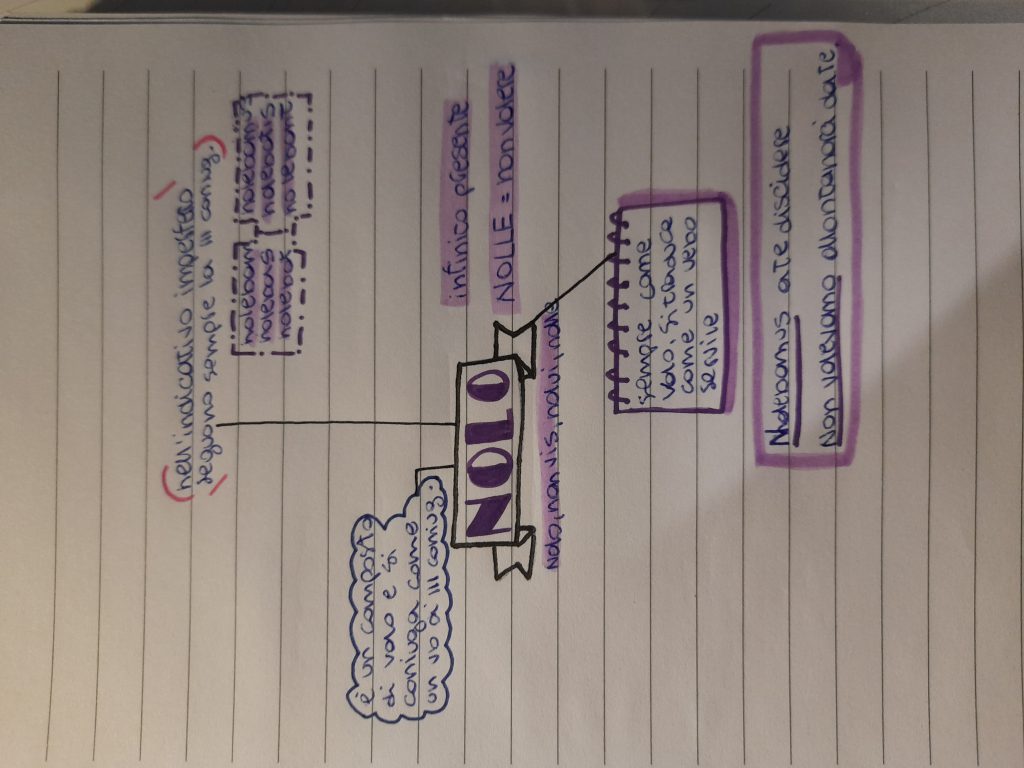 nell'indicativo imperfetto
seguono sempre la III coniug.
nolebam
nolebas
nolebat
nolebamus
nolebatis
nolebant
è un composto
di volo e si
coniuga come
un vb di III coniug.
infinito presente
NOLLE = non volere
NOLO
Nolo, non vis, nolui, nolle
sempre come
volo, si traduce
come un verbo
servile
Nolebamus a te discidere
Non volevamo allontanarci da te.